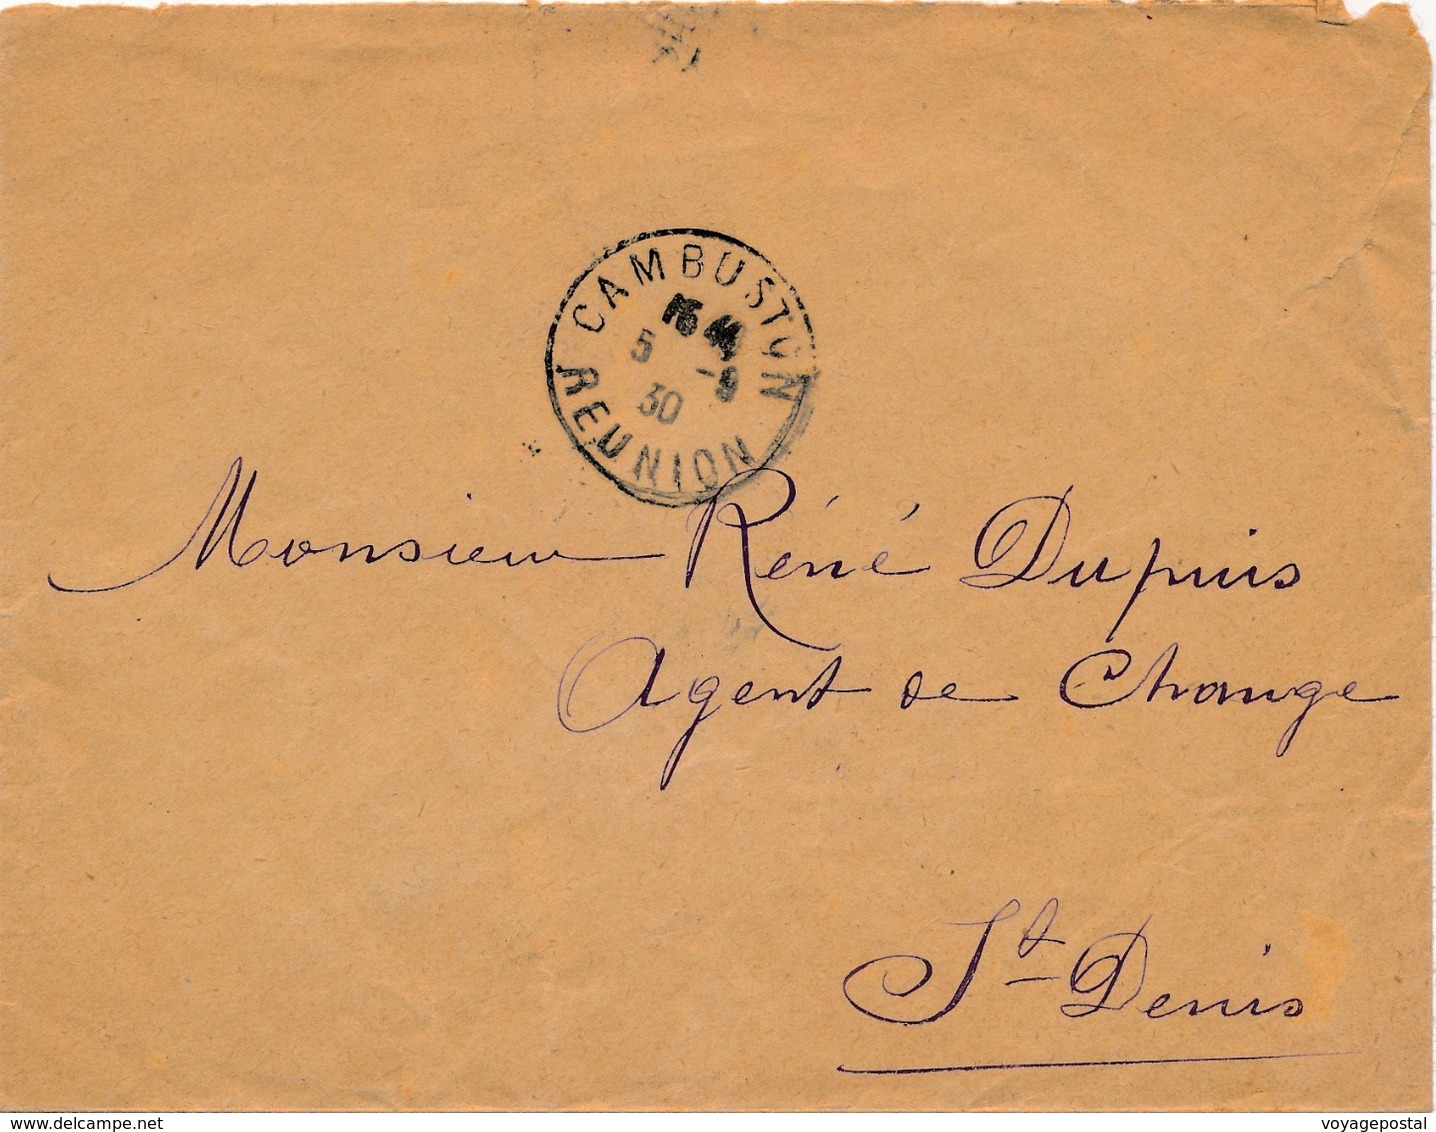 CAMBUSTON
5 -9
30
REUNION
Monsieur Réné Dupuis
Agent de Change
St Denis
www.delcampe.net
voyagepostal